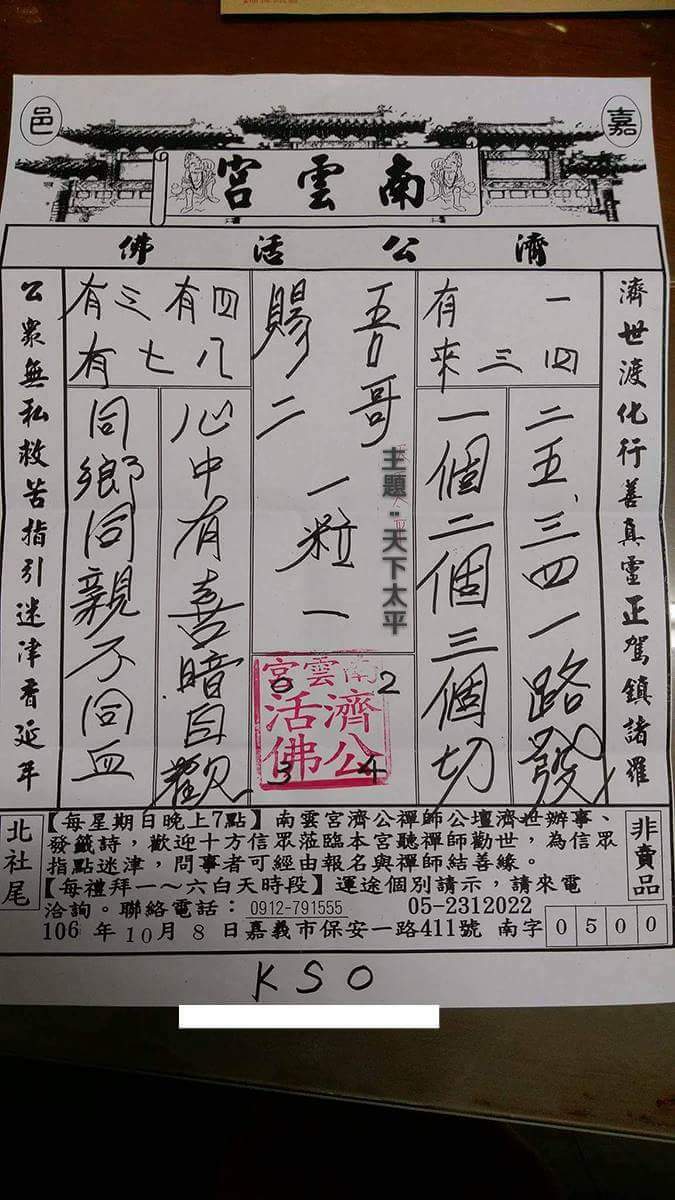 嘉
邑
南雲宮
濟公活佛
濟世渡化行善真靈正駕鎮諸羅
一四
有來三
二五、三四一路發
一個二個三個切
吾哥
賜二
一粒一
主題:天下太平
南雲宮
濟公
活佛
0 2
3 4
四八
有三有
有七
心中有喜暗自歡
同鄉同親不同血
公眾無私救苦指引迷津香延年
北社尾
【每星期日晚上7點】南雲宮濟公禪師公壇濟世辦事、
發籤詩,歡迎十方信眾蒞臨本宮聽禪師勸世,為信眾
指點迷津,問事者可經由報名與禪師結善緣。
【每禮拜一~六白天時段】運途個別請示,請來電
洽詢。聯絡電話:0912-791555 05-2312022
106 年 10 月 8 日嘉義市保安一路411號 南字 0 5 0 0
非賣品
KSO